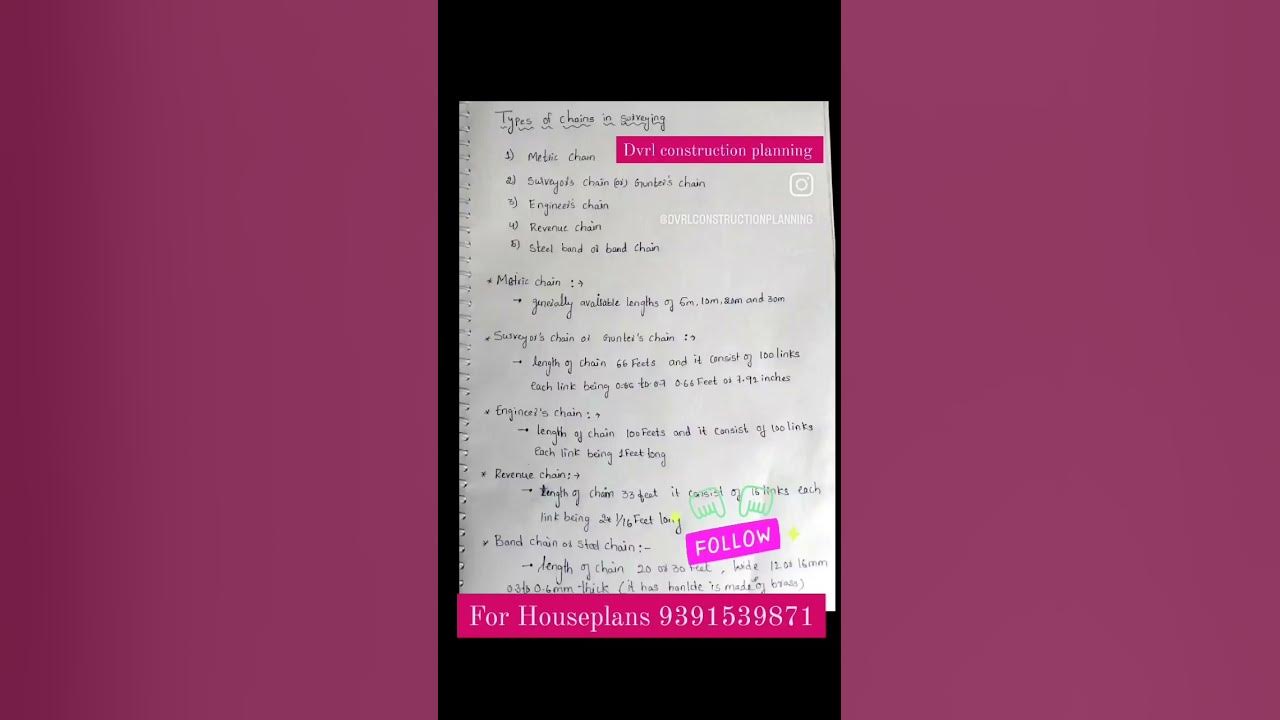 Types of chains in surveying
Dvrl construction planning
1) Metric chain
2) Surveyor's chain (or) Gunter's chain
3) Engineer's chain
@DVRLCONSTRUCTIONPLANNING
4) Revenue chain
5) Steel band or band chain
* Metric chain :→
→ generally available lengths of 5m, 10m, 20m and 30m
* Surveyor's chain or Gunter's chain :→
→ length of chain 66 Feets and it consist of 100 links
each link being 0.66 to 0.7 0.66 Feet or 7.92 inches
* Engineer's chain :→
→ length of chain 100 Feets and it consist of 100 links
each link being 1 Feet long
* Revenue chain :→
→ length of chain 33 feet it consist of 16 links each
link being 2* 1/16 Feet long
FOLLOW
* Band chain or Steel chain :-
→ length of chain 20 or 30 Feet, wide 12 or 16mm
0.3 to 0.6mm thick (it has hanlde is made of brass)
For Houseplans 9391539871